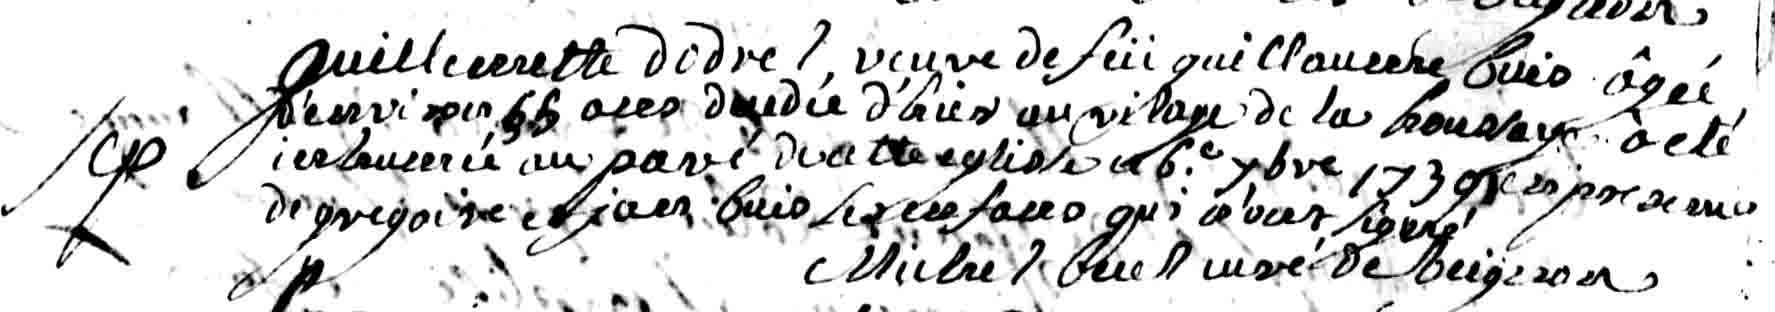 Guillemette dodre l veuve de feü guillaume buis âgée
d'environ 55 ans deedée d'hier au vilage de la houssaye a eté
inhumée au pavé de cette eglise ce 6.e 7bre 1739 en presence
de gregoire et jan buis ses enfans qui n'ont signé
Michel curé de beignon